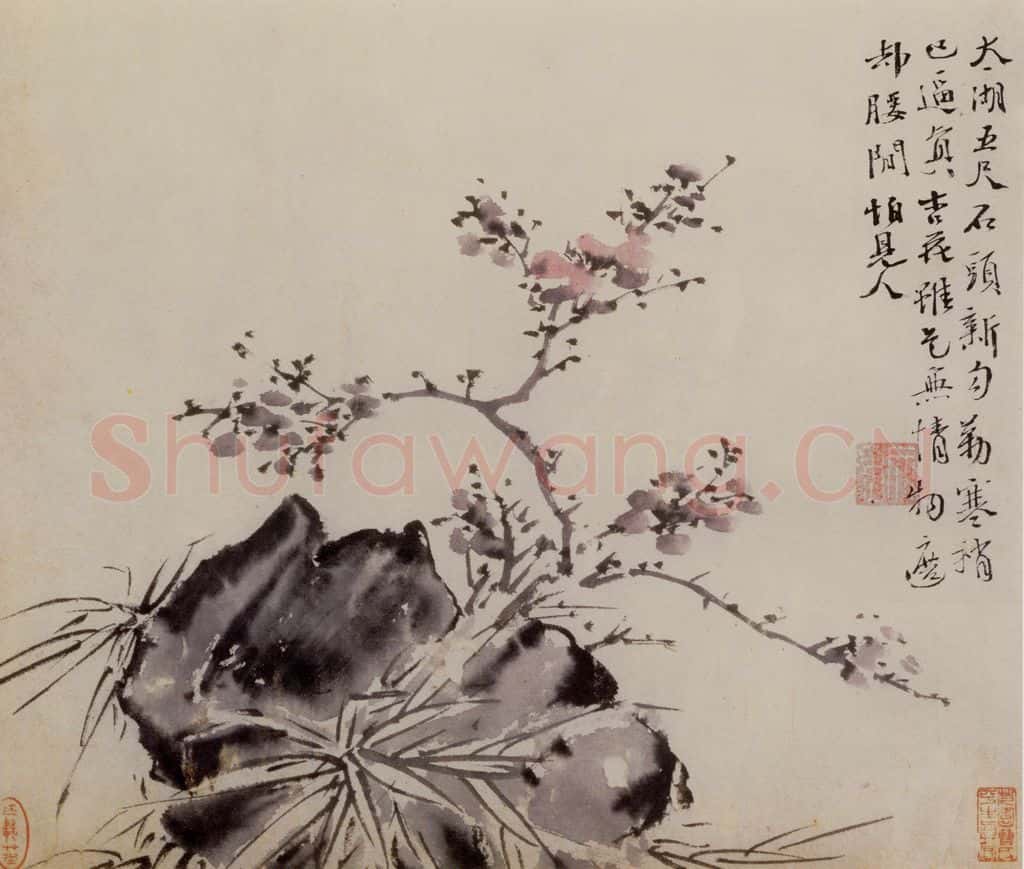 太湖五尺石頭新勾勒寒梢
已逼真杏花雖是無情物遮
却腰間怕見人
Shufawang.CN